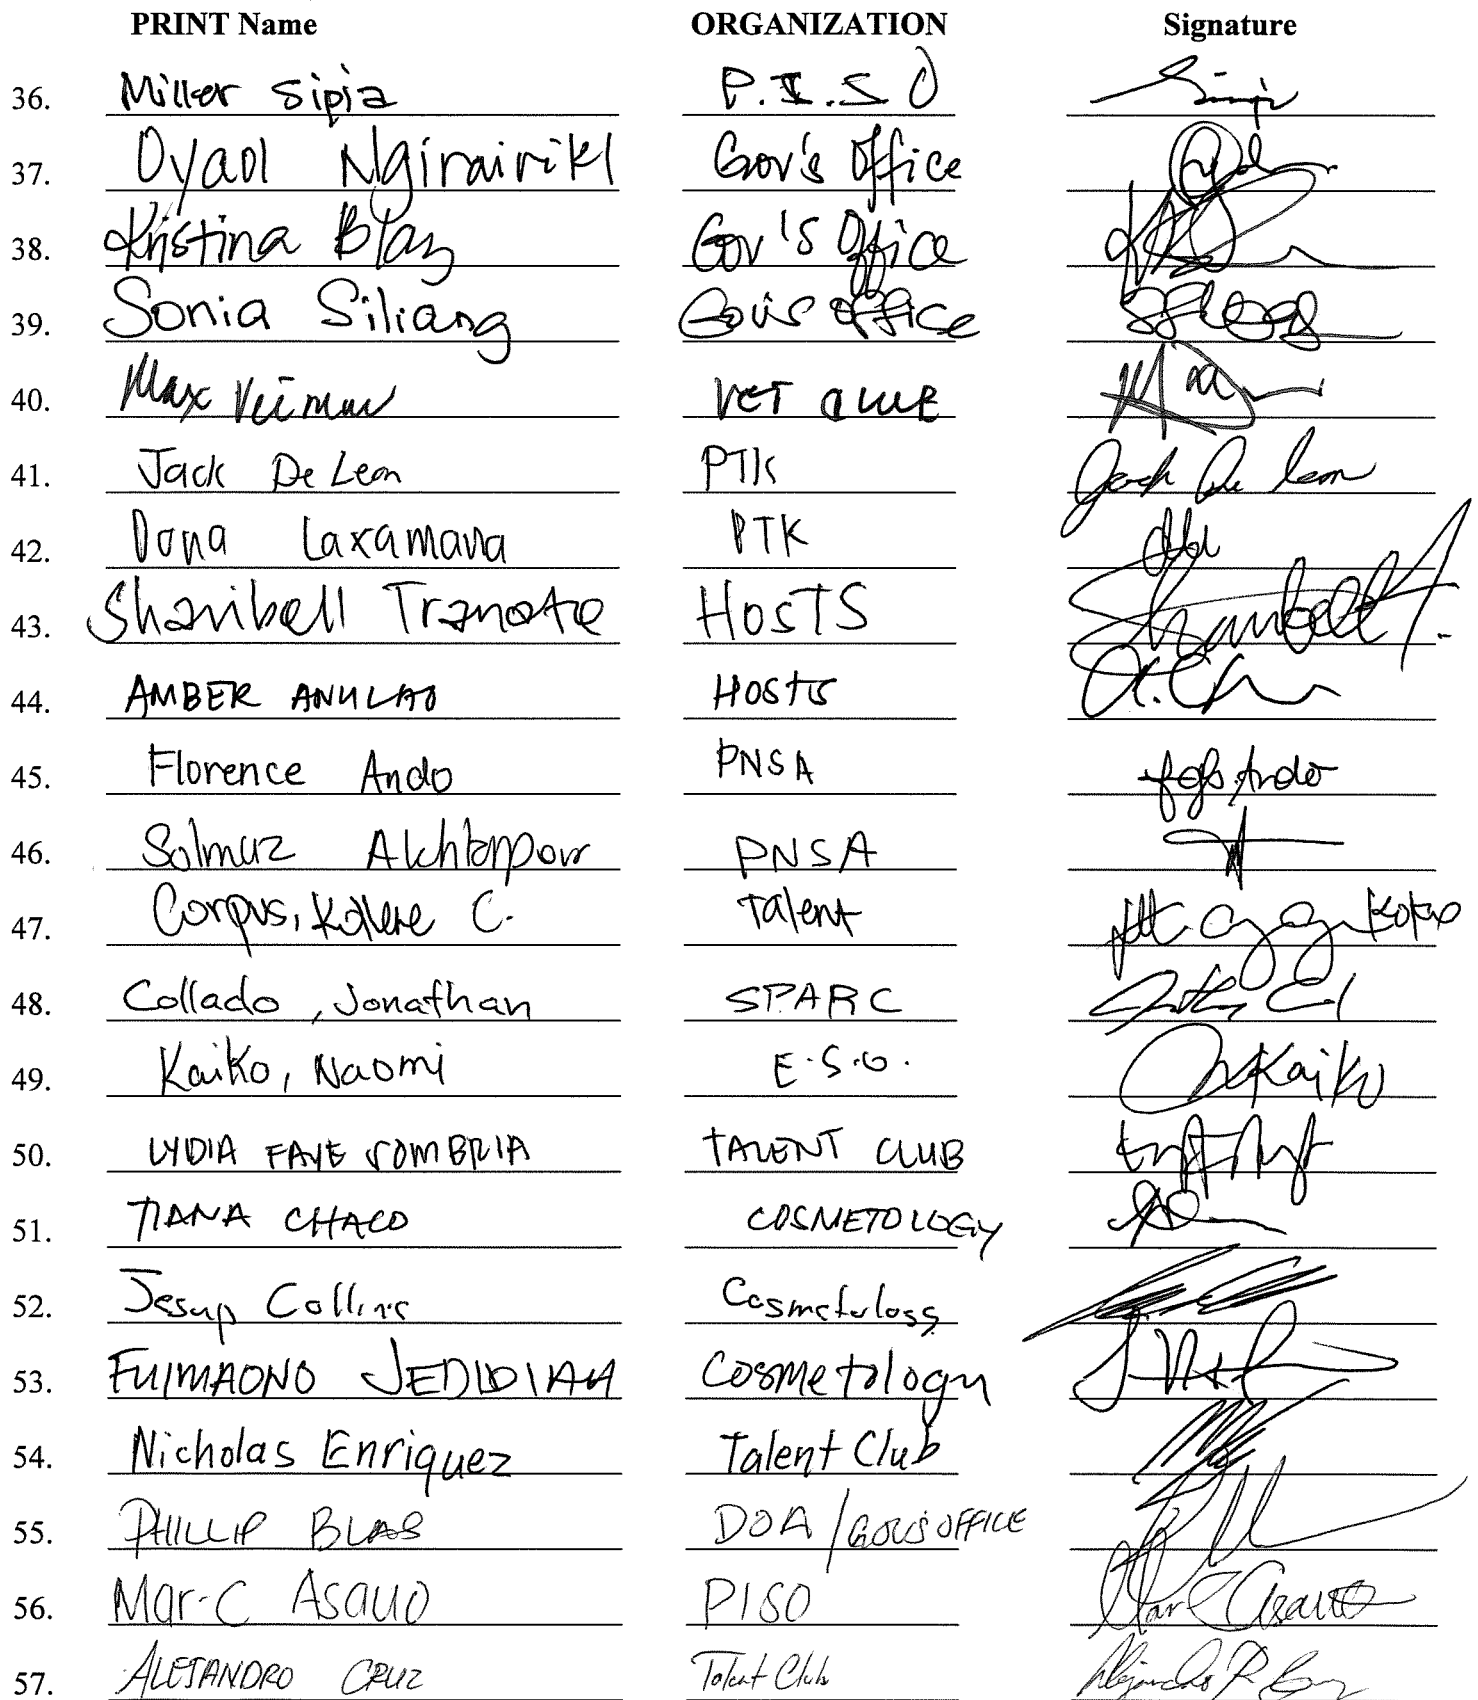 PRINT Name ORGANIZATION Signature
36. Miller Sipia P.I.S.O
37. Oyaol Ngirairikl Gov's Office
38. Kristina Blaz Gov's Office
39. Sonia Siliang Gov's Office
40. Max VET CLUB
41. Jack De Leon PTK Jack De Leon
42. Dona Laxamana PTK
43. Sharibell Tranate HOSTS Sharibell T.
44. AMBER ANULAO HOSTS
45. Florence Ando PNSA Ando
46. Solmaz Akhtarpour PNSA
47. Corpus, C. Talent
48. Collado, Jonathan SPARC
49. Kaiko, Naomi E.S.O. Kaiko
50. LYDIA FAYE SOMBRIA TALENT CLUB
51. TIANA CHACO COSMETOLOGY
52. Jesup Collins Cosmetology
53. FUIMAONO JEDIDIAH Cosmetology
54. Nicholas Enriquez Talent Club
55. PHILLIP BLAS DOA/GOV'S OFFICE
56. Mar-C Asauo PISO Mar C Asauo
57. ALEJANDRO CRUZ Talent Club Alejandro R.